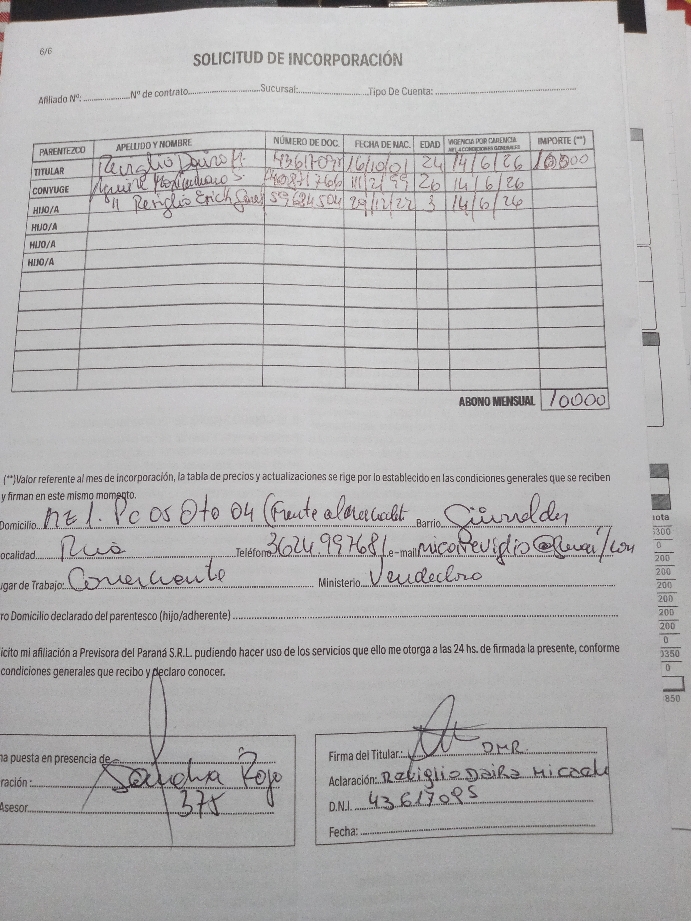 6/6
SOLICITUD DE INCORPORACIÓN
Afiliado Nº: Nº de contrato Sucursal: Tipo De Cuenta:
PARENTEZCO APELLIDO Y NOMBRE NÚMERO DE DOC. FECHA DE NAC. EDAD VIGENCIA POR CARENCIA CONDICIONES GENERALES IMPORTE (**)
TITULAR 16/10/01 24 14/6/26 10000
CONYUGE 14/6/26
HIJO/A Reviglio Erich 59684504 29/12/22 3 14/6/26
HIJO/A
HIJO/A
HIJO/A
ABONO MENSUAL 10000
(**)Valor referente al mes de incorporación, la tabla de precios y actualizaciones se rige por lo establecido en las condiciones generales que se reciben
y firman en este mismo momento.
Domicilio Mz 1. Pc 05 Dto 04 (Frente Barrio
ocalidad Teléfono e-mail
ugar de Trabajo: Comerciante Ministerio Vendedora
ro Domicilio declarado del parentesco (hijo/adherente)
icito mi afiliación a Previsora del Paraná S.R.L. pudiendo hacer uso de los servicios que ello me otorga a las 24 hs. de firmada la presente, conforme
condiciones generales que recibo y declaro conocer.
a puesta en presencia de
ración: Sandra Rojo
Asesor 375
Firma del Titular: DMR
Aclaración: Reviglio Daira Micaela
D.N.I. 43617095
Fecha:
ota
0
200
200
200
200
200
0
3350
0
850